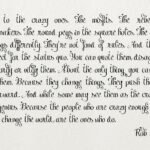 to the crazy ones. The misfits. The rebe
makers. The round pegs in the square holes. The
gs differently. They're not fond of rules. And the
ct for the status quo. You can quote them, disag
rify or vilify them. About the only thing you can
them. Because they change things. They push the
rward. And while some may see them as the craz
genius. Because the people who are crazy enough
change the world, are the ones who do.